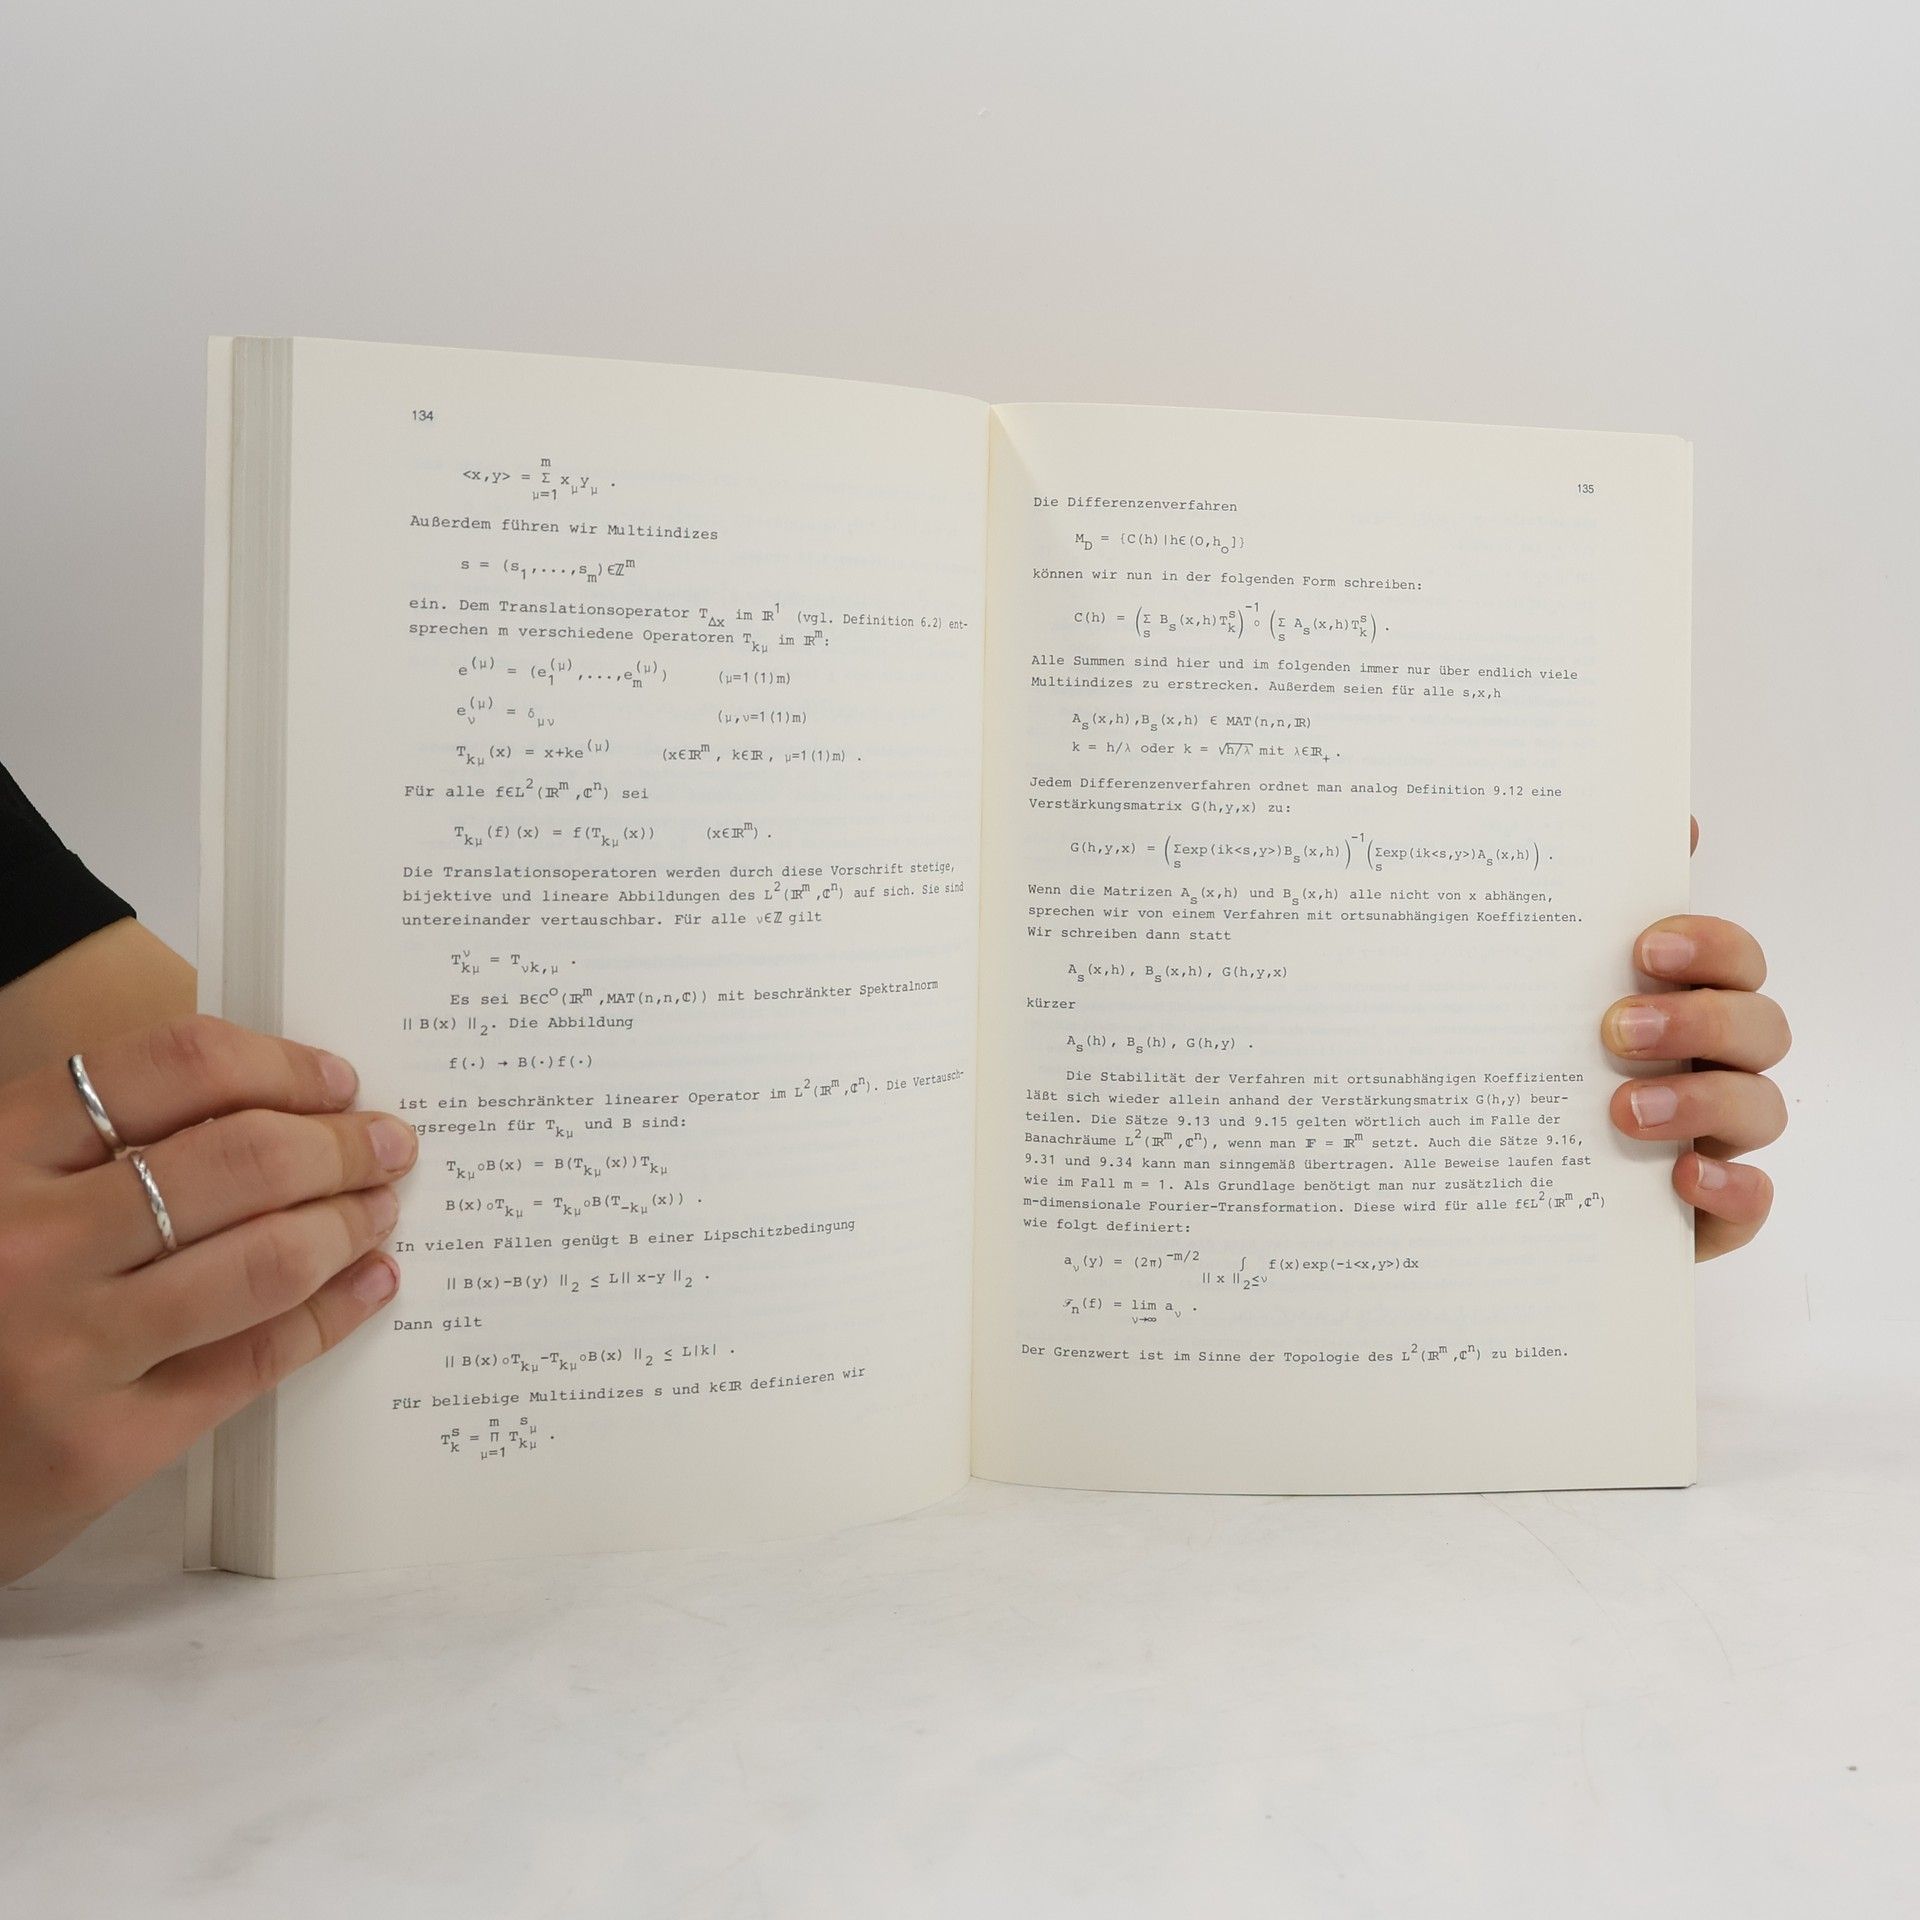 134
<x,y> = Σ_{μ=1}^{m} x_μ y_μ .
Außerdem führen wir Multiindizes
s = (s_1,...,s_m)∈ℤ^m
ein. Dem Translationsoperator T_{Δx} im ℝ^1 (vgl. Definition 6.2) ent-
sprechen m verschiedene Operatoren T_{kμ} im ℝ^m:
e^{(μ)} = (e_1^{(μ)},...,e_m^{(μ)}) (μ=1(1)m)
e_ν^{(μ)} = δ_{μν} (μ,ν=1(1)m)
T_{kμ}(x) = x+ke^{(μ)} (x∈ℝ^m, k∈ℝ, μ=1(1)m) .
Für alle f∈L^2(ℝ^m,ℂ^n) sei
T_{kμ}(f)(x) = f(T_{kμ}(x)) (x∈ℝ^m) .
Die Translationsoperatoren werden durch diese Vorschrift stetige,
bijektive und lineare Abbildungen des L^2(ℝ^m,ℂ^n) auf sich. Sie sind
untereinander vertauschbar. Für alle ν∈ℤ gilt
T_{kμ}^ν = T_{νk,μ} .
Es sei B∈C^0(ℝ^m,MAT(n,n,ℂ)) mit beschränkter Spektralnorm
||B(x)||_2. Die Abbildung
f(·) → B(·)f(·)
ist ein beschränkter linearer Operator im L^2(ℝ^m,ℂ^n). Die Vertausch-
ngsregeln für T_{kμ} und B sind:
T_{kμ}∘B(x) = B(T_{kμ}(x))T_{kμ}
B(x)∘T_{kμ} = T_{kμ}∘B(T_{-kμ}(x)) .
In vielen Fällen genügt B einer Lipschitzbedingung
||B(x)-B(y)||_2 ≤ L||x-y||_2 .
Dann gilt
||B(x)∘T_{kμ}-T_{kμ}∘B(x)||_2 ≤ L|k| .
Für beliebige Multiindizes s und k∈ℝ definieren wir
T_k^s = Π_{μ=1}^{m} T_{kμ}^{s_μ} .
135
Die Differenzenverfahren
M_D = {C(h)|h∈(0,h_0]}
können wir nun in der folgenden Form schreiben:
C(h) = (Σ_s B_s(x,h)T_k^s)^{-1} ∘ (Σ_s A_s(x,h)T_k^s) .
Alle Summen sind hier und im folgenden immer nur über endlich viele
Multiindizes zu erstrecken. Außerdem seien für alle s,x,h
A_s(x,h),B_s(x,h) ∈ MAT(n,n,ℝ)
k = h/λ oder k = √h/λ mit λ∈ℝ_+ .
Jedem Differenzenverfahren ordnet man analog Definition 9.12 eine
Verstärkungsmatrix G(h,y,x) zu:
G(h,y,x) = (Σ_s exp(ik<s,y>)B_s(x,h))^{-1}(Σ_s exp(ik<s,y>)A_s(x,h)) .
Wenn die Matrizen A_s(x,h) und B_s(x,h) alle nicht von x abhängen,
sprechen wir von einem Verfahren mit ortsunabhängigen Koeffizienten.
Wir schreiben dann statt
A_s(x,h), B_s(x,h), G(h,y,x)
kürzer
A_s(h), B_s(h), G(h,y) .
Die Stabilität der Verfahren mit ortsunabhängigen Koeffizienten
läßt sich wieder allein anhand der Verstärkungsmatrix G(h,y) beur-
teilen. Die Sätze 9.13 und 9.15 gelten wörtlich auch im Falle der
Banachräume L^2(ℝ^m,ℂ^n), wenn man 𝔽 = ℝ^m setzt. Auch die Sätze 9.16,
9.31 und 9.34 kann man sinngemäß übertragen. Alle Beweise laufen fast
wie im Fall m = 1. Als Grundlage benötigt man nur zusätzlich die
m-dimensionale Fourier-Transformation. Diese wird für alle f∈L^2(ℝ^m,ℂ^n)
wie folgt definiert:
a_ν(y) = (2π)^{-m/2} ∫_{||x||_2≤ν} f(x)exp(-i<x,y>)dx
ℱ_n(f) = lim_{ν→∞} a_ν .
Der Grenzwert ist im Sinne der Topologie des L^2(ℝ^m,ℂ^n) zu bilden.